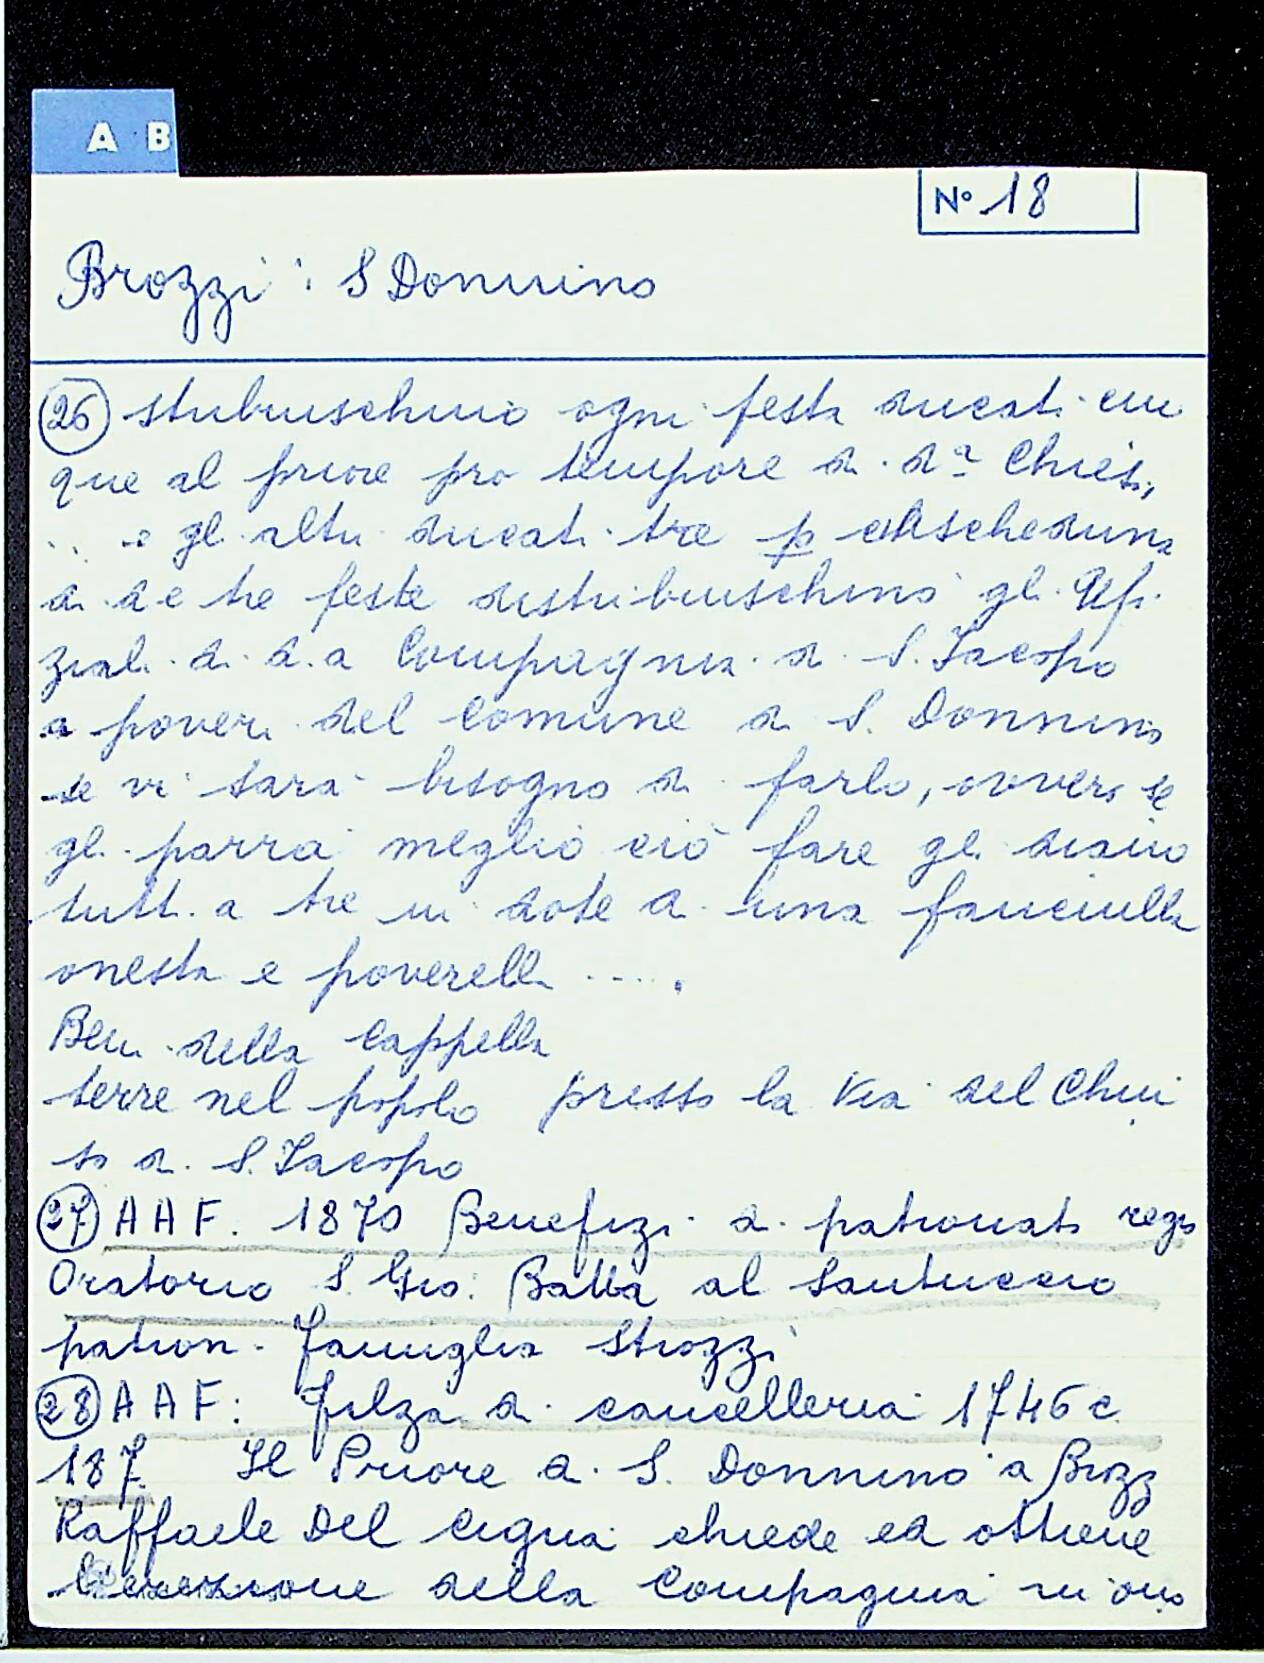 A B
Nº 18
Brozzi: S Donnino
(26) stribuischino ogni festa ducati cin
que al priore pro tempore di d.ª Chiesa,
... e gli altri ducati tre p ciascheduna
di d e tre feste distribuischino gli Ufi
ziali di d.a Compagnia di S. Jacopo
a poveri del Comune di S. Donnino
se vi sarà bisogno di farlo, ovvero se
gli parrà meglio ciò fare gli diano
tutti a tre in dote a una fanciulla
onesta e poverella ....
Beni della Cappella
terre nel popolo presso la Via del Chiu
so di S. Jacopo
(27) A A F. 1870 Benefizi di patronato regio
Oratorio S. Gio: Batta al Santuccio
patron. famiglia Strozzi
(28) A A F: filza di cancelleria 1746 c
187. Il Priore di S. Donnino a Brozzi
Raffaele Del Cigna chiede ed ottiene
l'erezione della Compagnia in ono